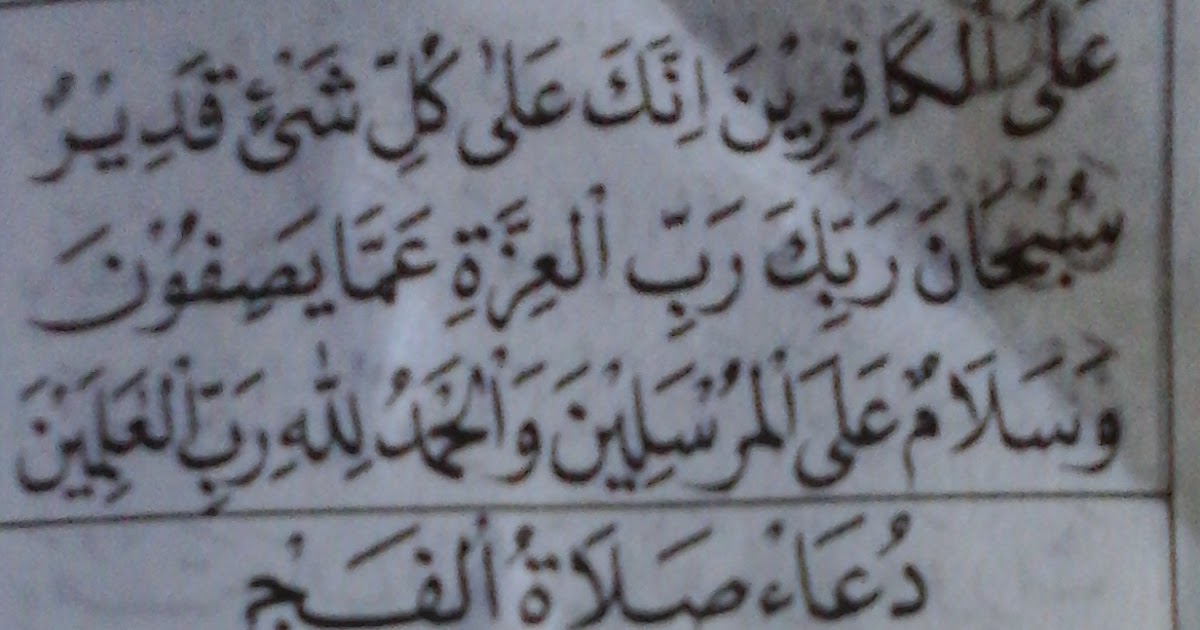 عَلَى الْكَافِرِيْنَ اِنَّكَ عَلٰى كُلِّ شَىْءٍ قَدِيْرٌ
سُبْحَانَ رَبِّكَ رَبِّ الْعِزَّةِ عَمَّا يَصِفُوْنَ
وَسَلَامٌ عَلَى الْمُرْسَلِيْنَ وَالْحَمْدُ لِلّٰهِ رَبِّ الْعٰلَمِيْنَ
دُعَاءْ صَلَاةُ الْفَجْ